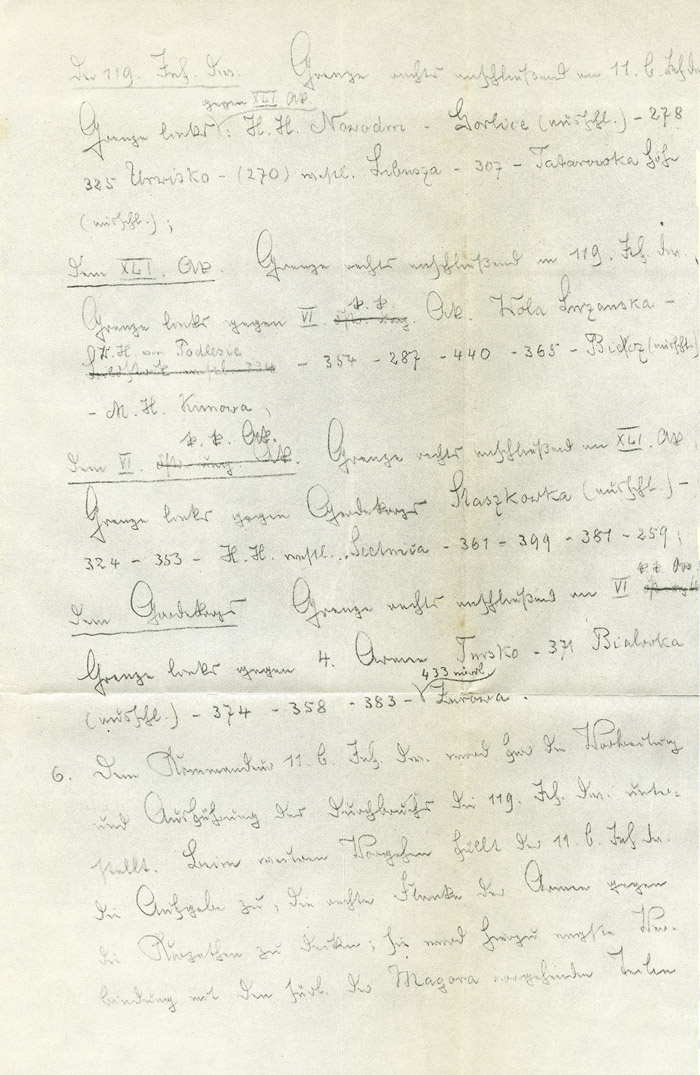 der 119. Inf. Div. Grenze rechts anschließend an 11. b. Inf. Div.
gegen XLI AK.
Grenze links: H. H. Nowodw - Gorlice (ausschl.) - 278
325 Urwisko - (270) westl. Libusza - 307 - Tatarowka Höhe
(ausschl.);
dem XLI. AK. Grenze rechts anschließend an 119. Inf. Div.,
k. k.
Grenze links gegen VI. öst. ung. AK. Wola Luzanska -
W. H. von Podlesie
- 354 - 287 - 440 - 365 - Biecz (ausschl.)
- M. H. Kunowa;
k. k. AK.
dem VI. öst. ung. AK. Grenze rechts anschließend an XLI. AK,
Grenze links gegen Gardekorps Staszkowka (ausschl.) -
324 - 353 - H. H. westl. Sietnica - 361 - 399 - 381 - 259;
k k AK.
dem Gardekorps Grenze rechts anschließend an VI
Grenze links gegen 4. Armee Tursko - 371 Bialowka
433 nördl.
(ausschl.) - 374 - 358 - 383 - Zurowa.
6. Dem Kommandeur 11. b. Inf. Div. wird für die Vorbereitung
und Ausführung des Durchbruchs die 119. Inf. Div. unter-
stellt. Beim weiteren Vorgehen fällt der 11. b. Inf. Div.
die Aufgabe zu, die rechte Flanke der Armee gegen
die Karpathen zu decken; sie wird hierzu engste Ver-
bindung mit den südl. der Magora vorgehenden Teilen